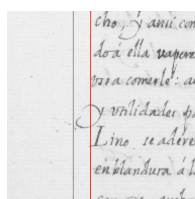 cho, y anii con
do á ella vapore
vria comerle: a
y vtilidades pa
Lino, se adere
en blandura á l